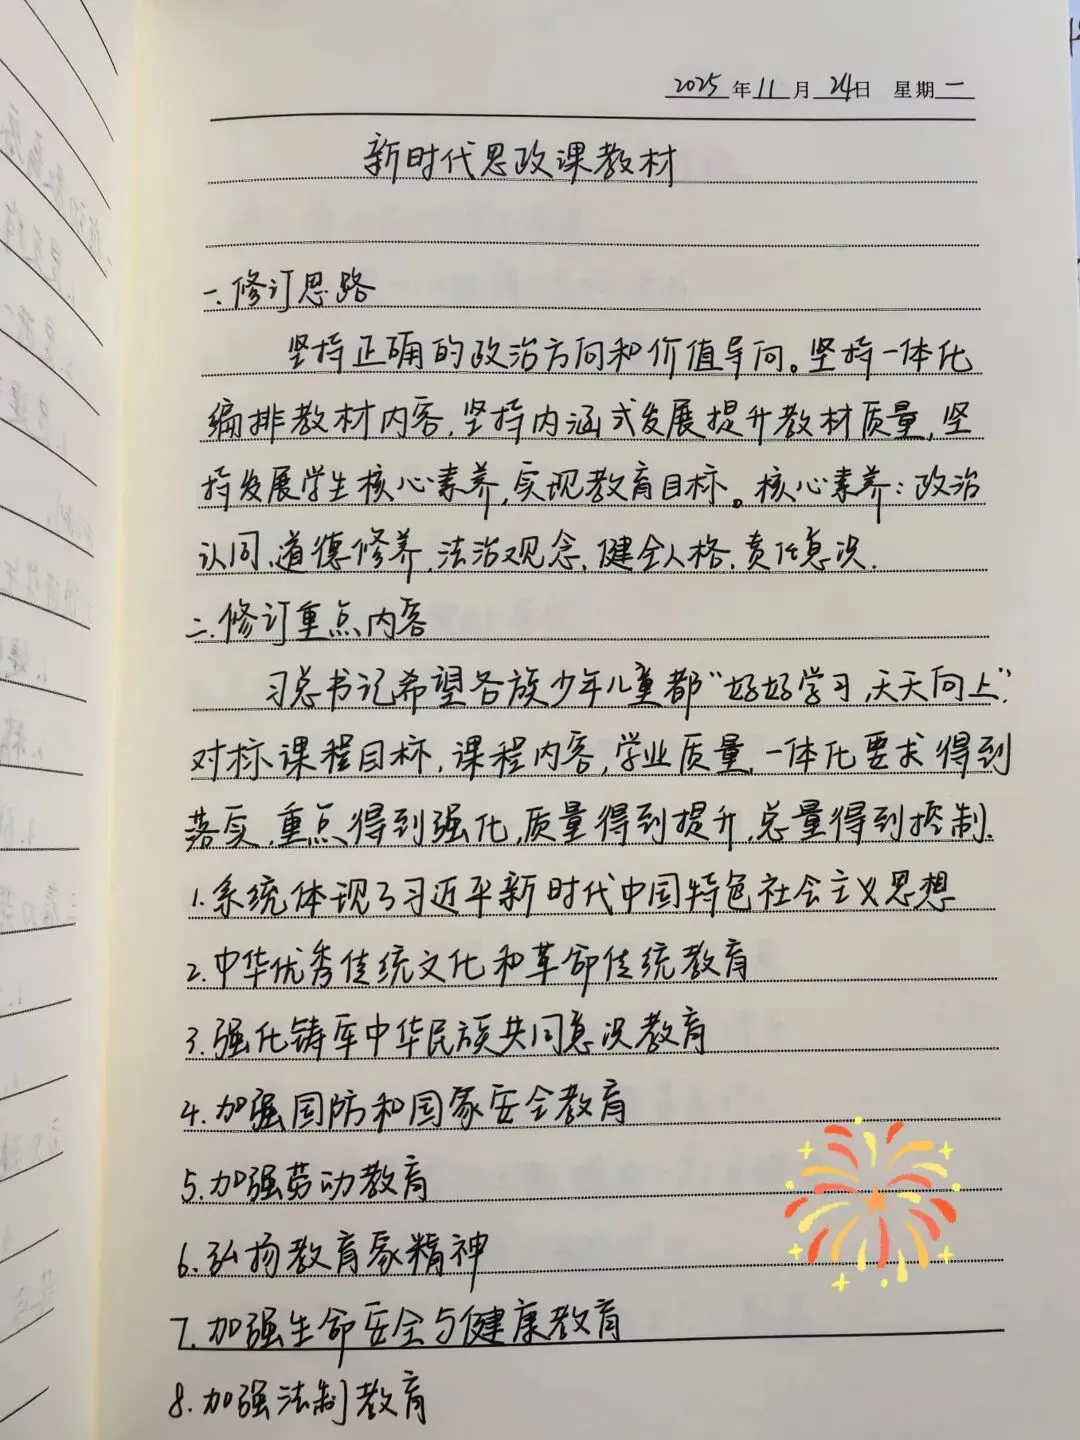 2025年11月24日 星期一
新时代思政课教材
一.修订思路
坚持正确的政治方向和价值导向。坚持一体化
编排教材内容,坚持内涵式发展提升教材质量,坚
持发展学生核心素养,实现教育目标。核心素养:政治
认同、道德修养、法治观念、健全人格、责任意识.
二.修订重点内容
习总书记希望各族少年儿童都“好好学习,天天向上”.
对标课程目标,课程内容,学业质量,一体化要求得到
落实,重点得到强化,质量得到提升,总量得到控制.
1.系统体现了习近平新时代中国特色社会主义思想
2.中华优秀传统文化和革命传统教育
3.强化铸牢中华民族共同意识教育
4.加强国防和国家安全教育
5.加强劳动教育
6.弘扬教育家精神
7.加强生命安全与健康教育
8.加强法制教育